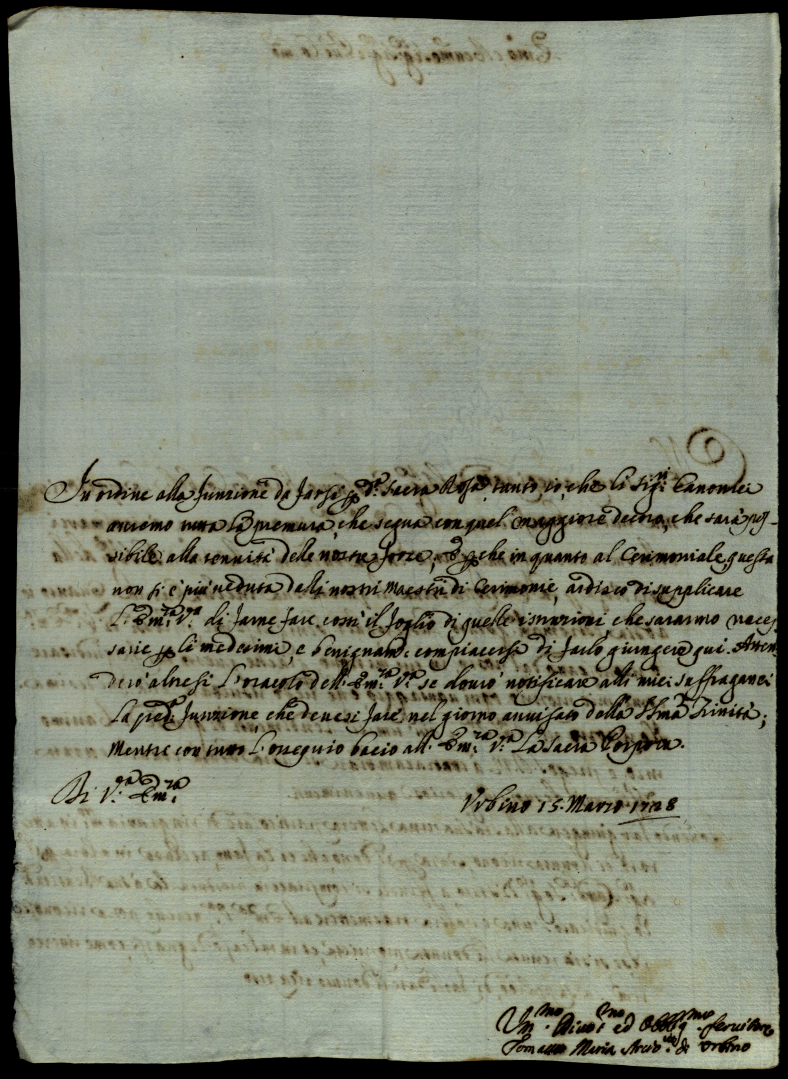 In ordine alla funzione da farsi p. d.ᵃ Sacra Rosa, tanto io, che li Sig.ʳⁱ Canonici
avremo tutta la premura, che segua con quel maggiore decoro, che sarà pos-
sibile alla tenuità delle nostre forze, e p. che in quanto al Cerimoniale questa
non si è più veduta dalli nostri Maestri di Cerimonie, ardisco di supplicare
l'Em.ᶻᵃ V.ᵃ di farne fare costì il foglio di quelle istruzioni, che saranno neces-
sarie p. li medesimi, e benignam.ᵉ compiacersi di farlo giungere qui. Atten-
derò altresì l'oracolo dell'Em.ᶻᵃ V.ᵃ se dovrò notificare alli miei suffraganei
la pred.ᵃ funzione, che devesi fare nel giorno avvisato della SSma Trinità;
Mentre con tutto l'ossequio bacio all'Em.ᶻᵃ V.ᵃ la Sacra Porpora.
Di V.ᵃ Em.ᶻᵃ
Urbino 15. Marzo 1728
Um.ᵐᵒ Divot.ᵐᵒ ed Obblig.ᵐᵒ servitore
Tomaso Maria Arciv.ᵒ di Urbino